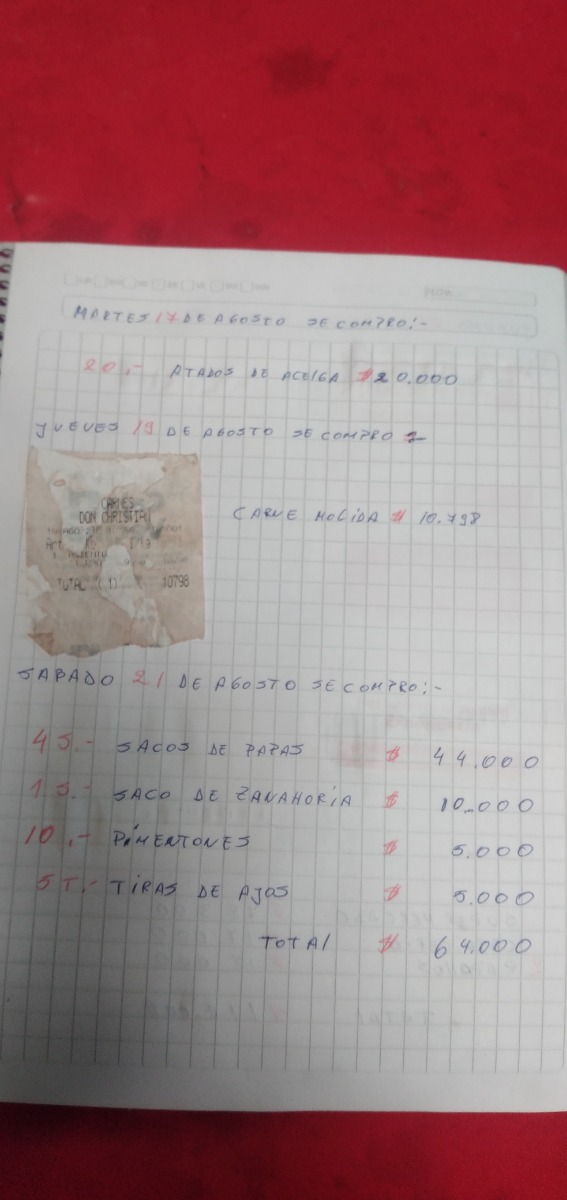 FECHA
MARTES 17 DE AGOSTO SE COMPRO:-
20.- ATADOS DE ACELGA $20.000
JUEVES 19 DE AGOSTO SE COMPRO
CARNES
DON CHRISTIAN
CARNE MOLIDA $ 10.798
TOTAL 10798
SABADO 21 DE AGOSTO SE COMPRO:-
4 S.- SACOS DE PAPAS $ 44.000
1 S.- SACO DE ZANAHORIA $ 10.000
10.- PIMENTONES $ 5.000
5 T.- TIRAS DE AJOS $ 5.000
TOTAL $ 64.000